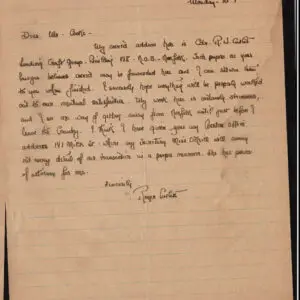 Monday -
Dear Mr. Cooke -
My correct address here is Cdr. R.W. Cutler
Landing Craft Group. Building 138 - N.O.B. - Norfolk. Such papers as your
lawyer believes correct may be forwarded here and I can return them
to you when finished. I sincerely hope everything will be properly worked
out to our mutual satisfaction. My work here is extremely strenuous,
and I see no way of getting away from Norfolk until just before I
leave the Country. I think I have given you my Boston office
address 141 Milk St. where my Secretary Miss will carry
out every detail of our transaction in a proper manner. She has power
of attorney for me.
Sincerely
Roger Cutler